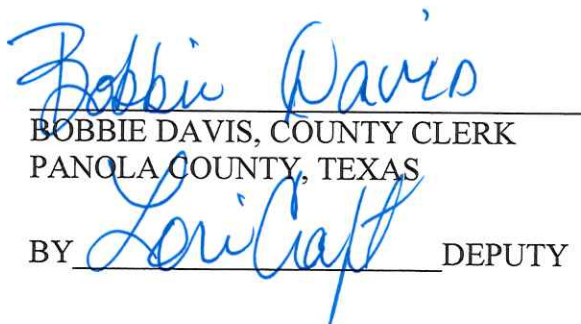 Bobbie Davis
BOBBIE DAVIS, COUNTY CLERK
PANOLA COUNTY, TEXAS
BY Lori Craft DEPUTY